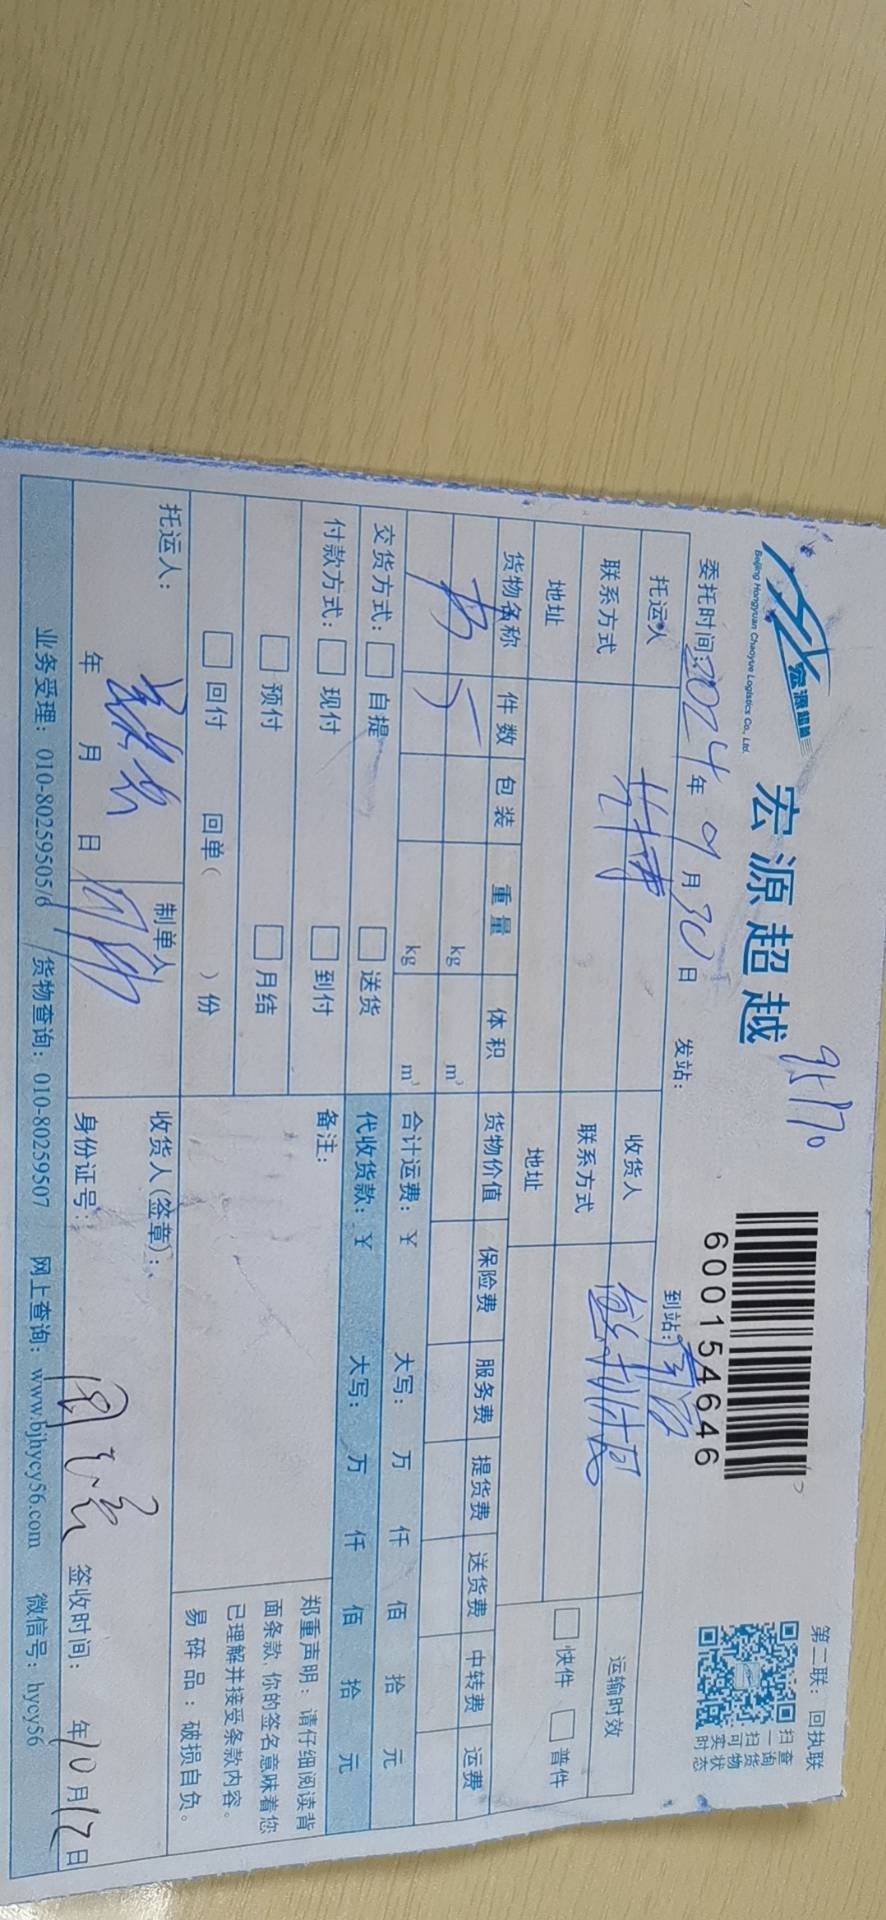 宏源超越
Beijing Hongyuan Chaoyue Logistics Co., Ltd.
宏源超越
600154646
第二联：回执联
扫一扫可实时
查询货物状态
委托时间:2024年9月30日 发站： 到站:
托运人 收货人 运输时效
联系方式 联系方式 快件 普件
地址 地址
货物名称 件数 包装 重量 体积 货物价值 保险费 服务费 提货费 送货费 中转费 运费
书 kg m³
kg m³ 合计运费：￥ 大写： 万 仟 佰 拾 元
交货方式： 自提 送货 代收货款：￥ 大写： 万 仟 佰 拾 元
付款方式： 现付 到付 备注：
预付 月结
回付 回单( )份
郑重声明：请仔细阅读背
面条款，你的签名意味着您
已理解并接受条款内容。
易碎品：破损自负。
托运人： 制单人 收货人(签章)：
年 月 日 身份证号： 签收时间： 年10月12日
业务受理：010-80259505/6 货物查询：010-80259507 网上查询：www.bjhycy56.com 微信号：hycy56